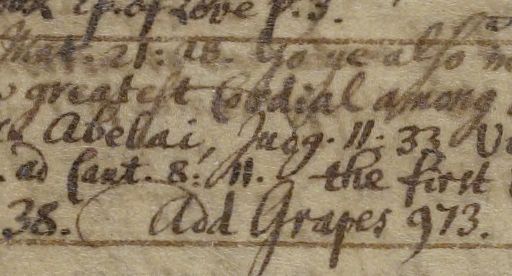 of Love p. 3.
Mat. 21: 28. Go ye also
greatest Cordial among
Abellai, Judg. 11: 33
. ad Cant. 8: 11. the first
38. Add Grapes 973.